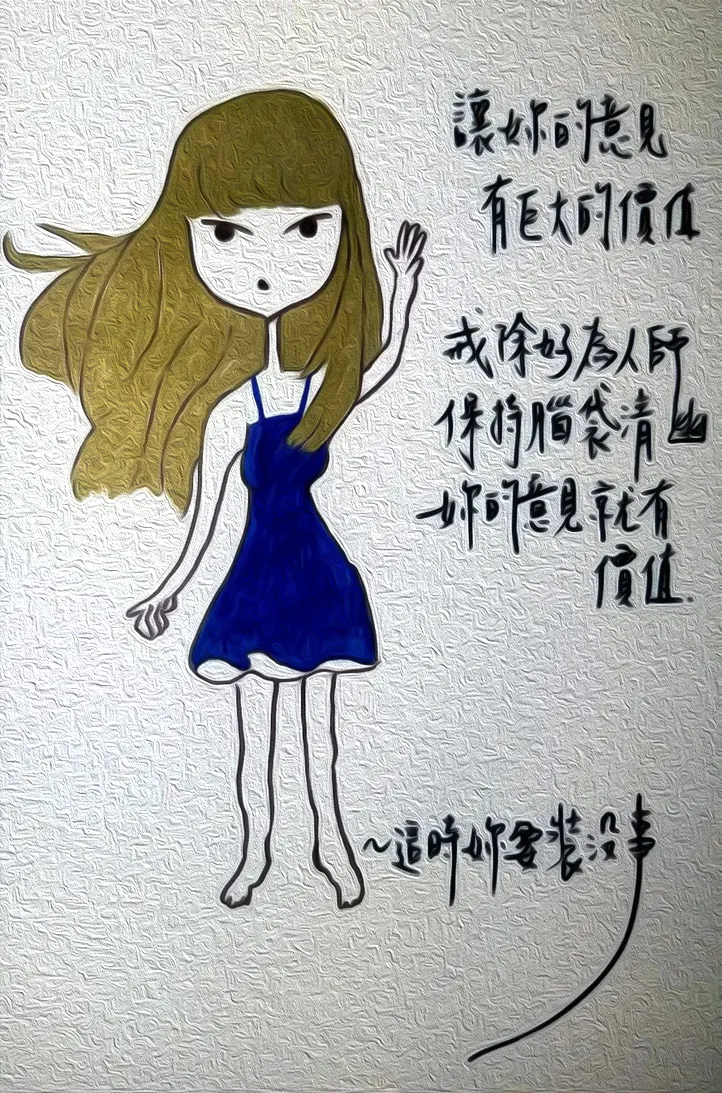 讓妳的意見
有巨大的價值
戒除好為人師
保持腦袋清
妳的意見就有
價值.
~這時妳要裝没事